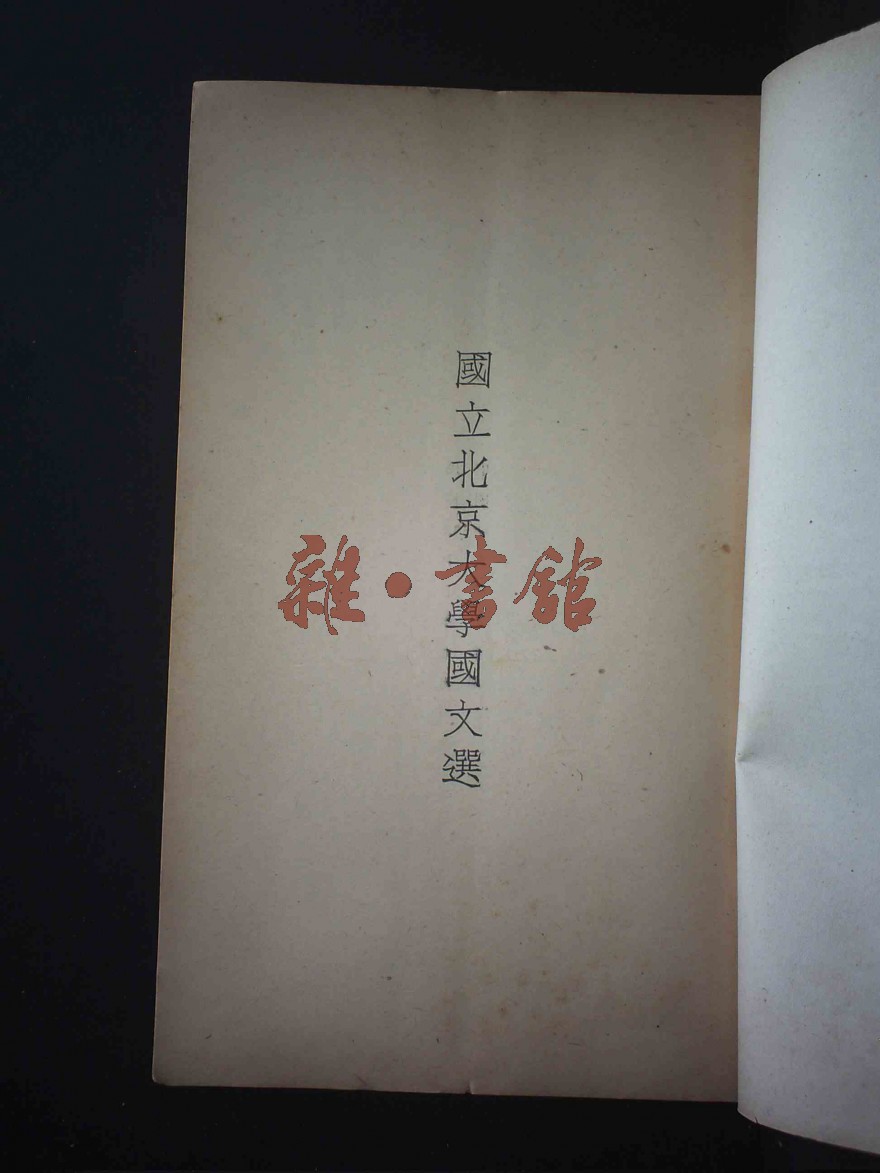 國立北京大學國文選
雜·書館